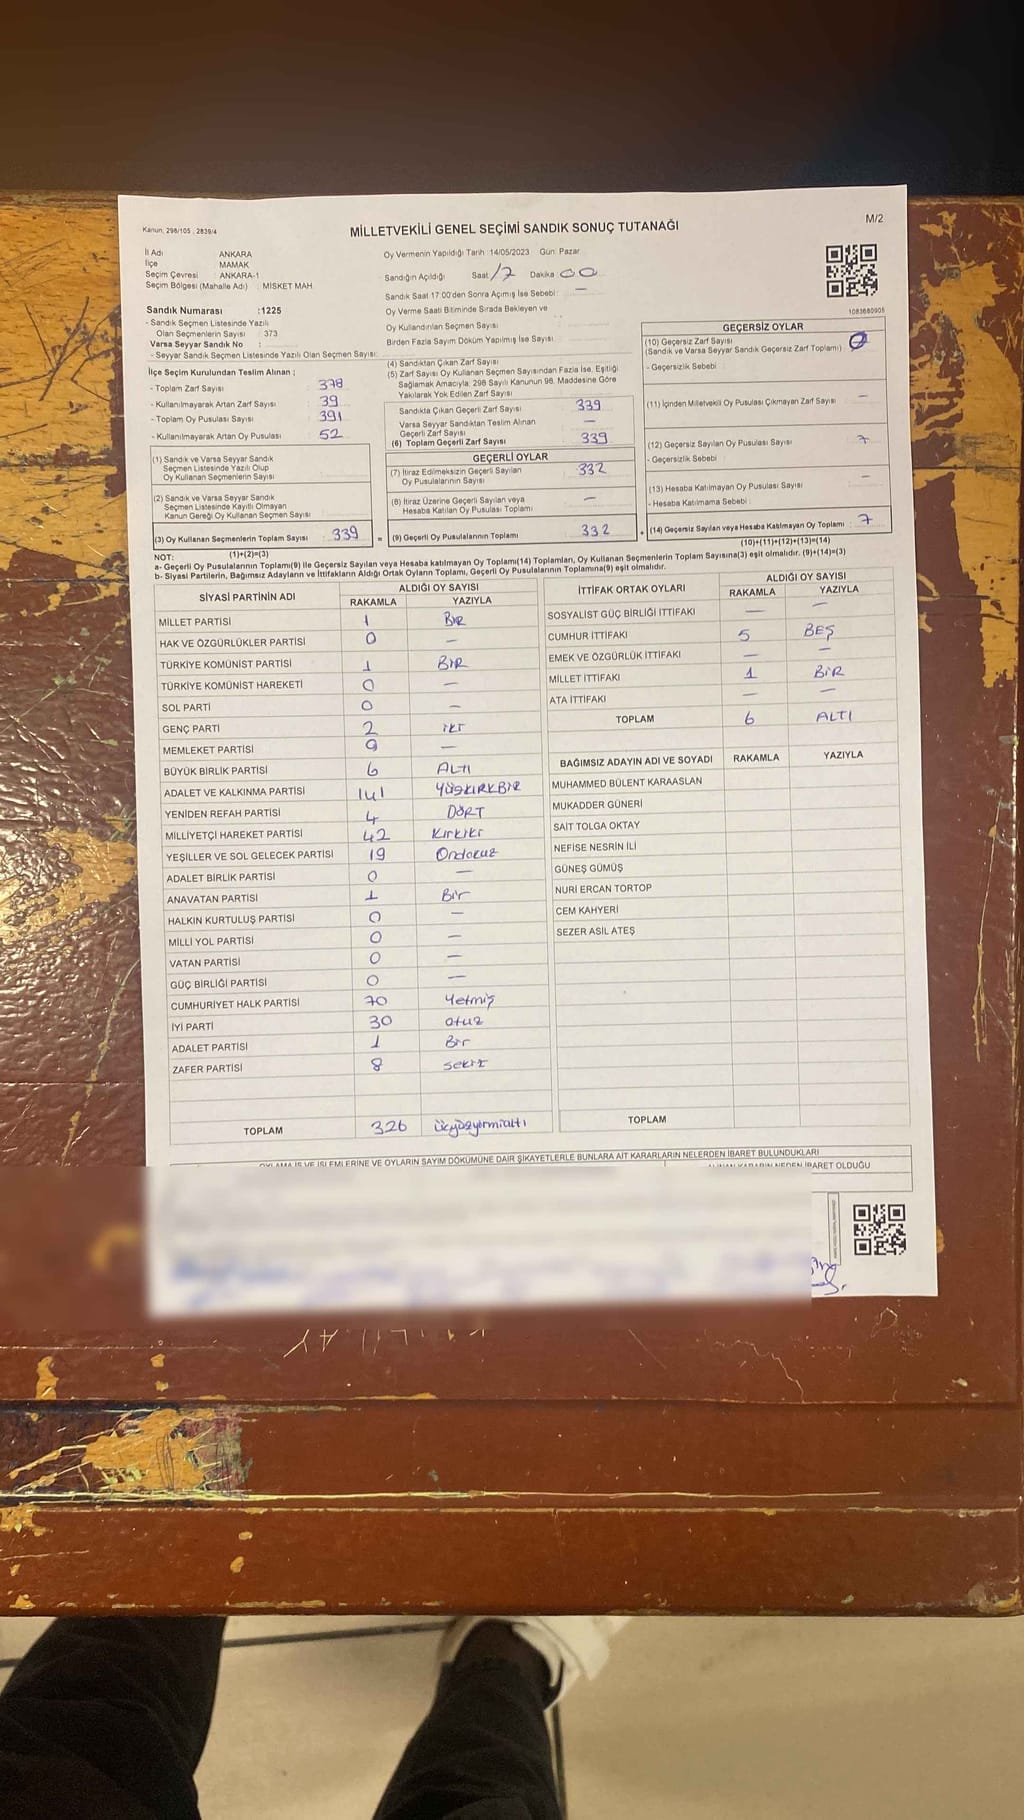 Kanun: 298/105 , 2839/4
MİLLETVEKİLİ GENEL SEÇİMİ SANDIK SONUÇ TUTANAĞI
M/2
İl Adı ANKARA
İlçe MAMAK
Seçim Çevresi : ANKARA-1
Seçim Bölgesi (Mahalle Adı) : MİSKET MAH
Sandık Numarası :1225
- Sandık Seçmen Listesinde Yazılı
Olan Seçmenlerin Sayısı : 373
Varsa Seyyar Sandık No :
- Seyyar Sandık Seçmen Listesinde Yazılı Olan Seçmen Sayısı:
Oy Vermenin Yapıldığı Tarih :14/05/2023 Gün: Pazar
Sandığın Açıldığı Saat 17 Dakika 00
Sandık Saat 17:00'den Sonra Açımış İse Sebebi : —
Oy Verme Saati Bitiminde Sırada Bekleyen ve
Oy Kullandırılan Seçmen Sayısı
Birden Fazla Sayım Döküm Yapılmış İse Sayısı
1083680905
İlçe Seçim Kurulundan Teslim Alınan ;
- Toplam Zarf Sayısı 378
- Kullanılmayarak Artan Zarf Sayısı 39
- Toplam Oy Pusulası Sayısı 391
- Kullanılmayarak Artan Oy Pusulası 52
(1) Sandık ve Varsa Seyyar Sandık
Seçmen Listesinde Yazılı Olup
Oy Kullanan Seçmenlerin Sayısı
(2) Sandık ve Varsa Seyyar Sandık
Seçmen Listesinde Kayıtlı Olmayan
Kanun Gereği Oy Kullanan Seçmen Sayısı
(3) Oy Kullanan Seçmenlerin Toplam Sayısı 339 =
(1)+(2)=(3)
(4) Sandıktan Çıkan Zarf Sayısı
(5) Zarf Sayısı Oy Kullanan Seçmen Sayısından Fazla İse, Eşitliği
Sağlamak Amacıyla; 298 Sayılı Kanunun 98. Maddesine Göre
Yakılarak Yok Edilen Zarf Sayısı
Sandıkta Çıkan Geçerli Zarf Sayısı 339
Varsa Seyyar Sandıktan Teslim Alınan
Geçerli Zarf Sayısı —
(6) Toplam Geçerli Zarf Sayısı 339
GEÇERLİ OYLAR
(7) İtiraz Edilmeksizin Geçerli Sayılan
Oy Pusulalarının Sayısı 332
(8) İtiraz Üzerine Geçerli Sayılan veya
Hesaba Katılan Oy Pusulası Toplamı —
(9) Geçerli Oy Pusulalarının Toplamı 332 +
GEÇERSİZ OYLAR
(10) Geçersiz Zarf Sayısı
(Sandık ve Varsa Seyyar Sandık Geçersiz Zarf Toplamı)
- Geçersizlik Sebebi
(11) İçinden Milletvekili Oy Pusulası Çıkmayan Zarf Sayısı —
(12) Geçersiz Sayılan Oy Pusulası Sayısı 7
- Geçersizlik Sebebi
(13) Hesaba Katılmayan Oy Pusulası Sayısı —
- Hesaba Katılmama Sebebi :
(14) Geçersiz Sayılan veya Hesaba Katılmayan Oy Toplamı : 7
(10)+(11)+(12)+(13)=(14)
NOT:
a- Geçerli Oy Pusulalarının Toplamı(9) ile Geçersiz Sayılan veya Hesaba katılmayan Oy Toplamı(14) Toplamları, Oy Kullanan Seçmenlerin Toplam Sayısına(3) eşit olmalıdır. (9)+(14)=(3)
b- Siyasi Partilerin, Bağımsız Adayların ve İttifakların Aldığı Ortak Oyların Toplamı, Geçerli Oy Pusulalarının Toplamına(9) eşit olmalıdır.
SİYASİ PARTİNİN ADI ALDIĞI OY SAYISI
RAKAMLA YAZIYLA
MİLLET PARTİSİ 1 BİR
HAK VE ÖZGÜRLÜKLER PARTİSİ 0 —
TÜRKİYE KOMÜNİST PARTİSİ 1 BİR
TÜRKİYE KOMÜNİST HAREKETİ 0 —
SOL PARTİ 0 —
GENÇ PARTİ 2 iki
MEMLEKET PARTİSİ —
BÜYÜK BİRLİK PARTİSİ 6 ALTI
ADALET VE KALKINMA PARTİSİ 141 YÜZKIRKBİR
YENİDEN REFAH PARTİSİ 4 DÖRT
MİLLİYETÇİ HAREKET PARTİSİ 42 Kırkiki
YEŞİLLER VE SOL GELECEK PARTİSİ 19 Ondokuz
ADALET BİRLİK PARTİSİ 0 —
ANAVATAN PARTİSİ 1 Bir
HALKIN KURTULUŞ PARTİSİ 0 —
MİLLİ YOL PARTİSİ 0 —
VATAN PARTİSİ 0 —
GÜÇ BİRLİĞİ PARTİSİ 0 —
CUMHURİYET HALK PARTİSİ 70 Yetmiş
İYİ PARTİ 30 otuz
ADALET PARTİSİ 1 Bir
ZAFER PARTİSİ 8 sekiz
TOPLAM 326 üçyüzyirmialtı
İTTİFAK ORTAK OYLARI ALDIĞI OY SAYISI
RAKAMLA YAZIYLA
SOSYALİST GÜÇ BİRLİĞİ İTTİFAKI — —
CUMHUR İTTİFAKI 5 BEŞ
EMEK VE ÖZGÜRLÜK İTTİFAKI — —
MİLLET İTTİFAKI 1 BİR
ATA İTTİFAKI — —
TOPLAM 6 ALTI
BAĞIMSIZ ADAYIN ADI VE SOYADI RAKAMLA YAZIYLA
MUHAMMED BÜLENT KARAASLAN
MUKADDER GÜNERİ
SAİT TOLGA OKTAY
NEFİSE NESRİN İLİ
GÜNEŞ GÜMÜŞ
NURİ ERCAN TORTOP
CEM KAHYERİ
SEZER ASİL ATEŞ
TOPLAM
OYLAMA İŞ VE İŞLEMLERİNE VE OYLARIN SAYIM DÖKÜMÜNE DAİR ŞİKAYETLERLE BUNLARA AİT KARARLARIN NELERDEN İBARET BULUNDUKLARI
ALINAN KARARIN NEDEN İBARET OLDUĞU